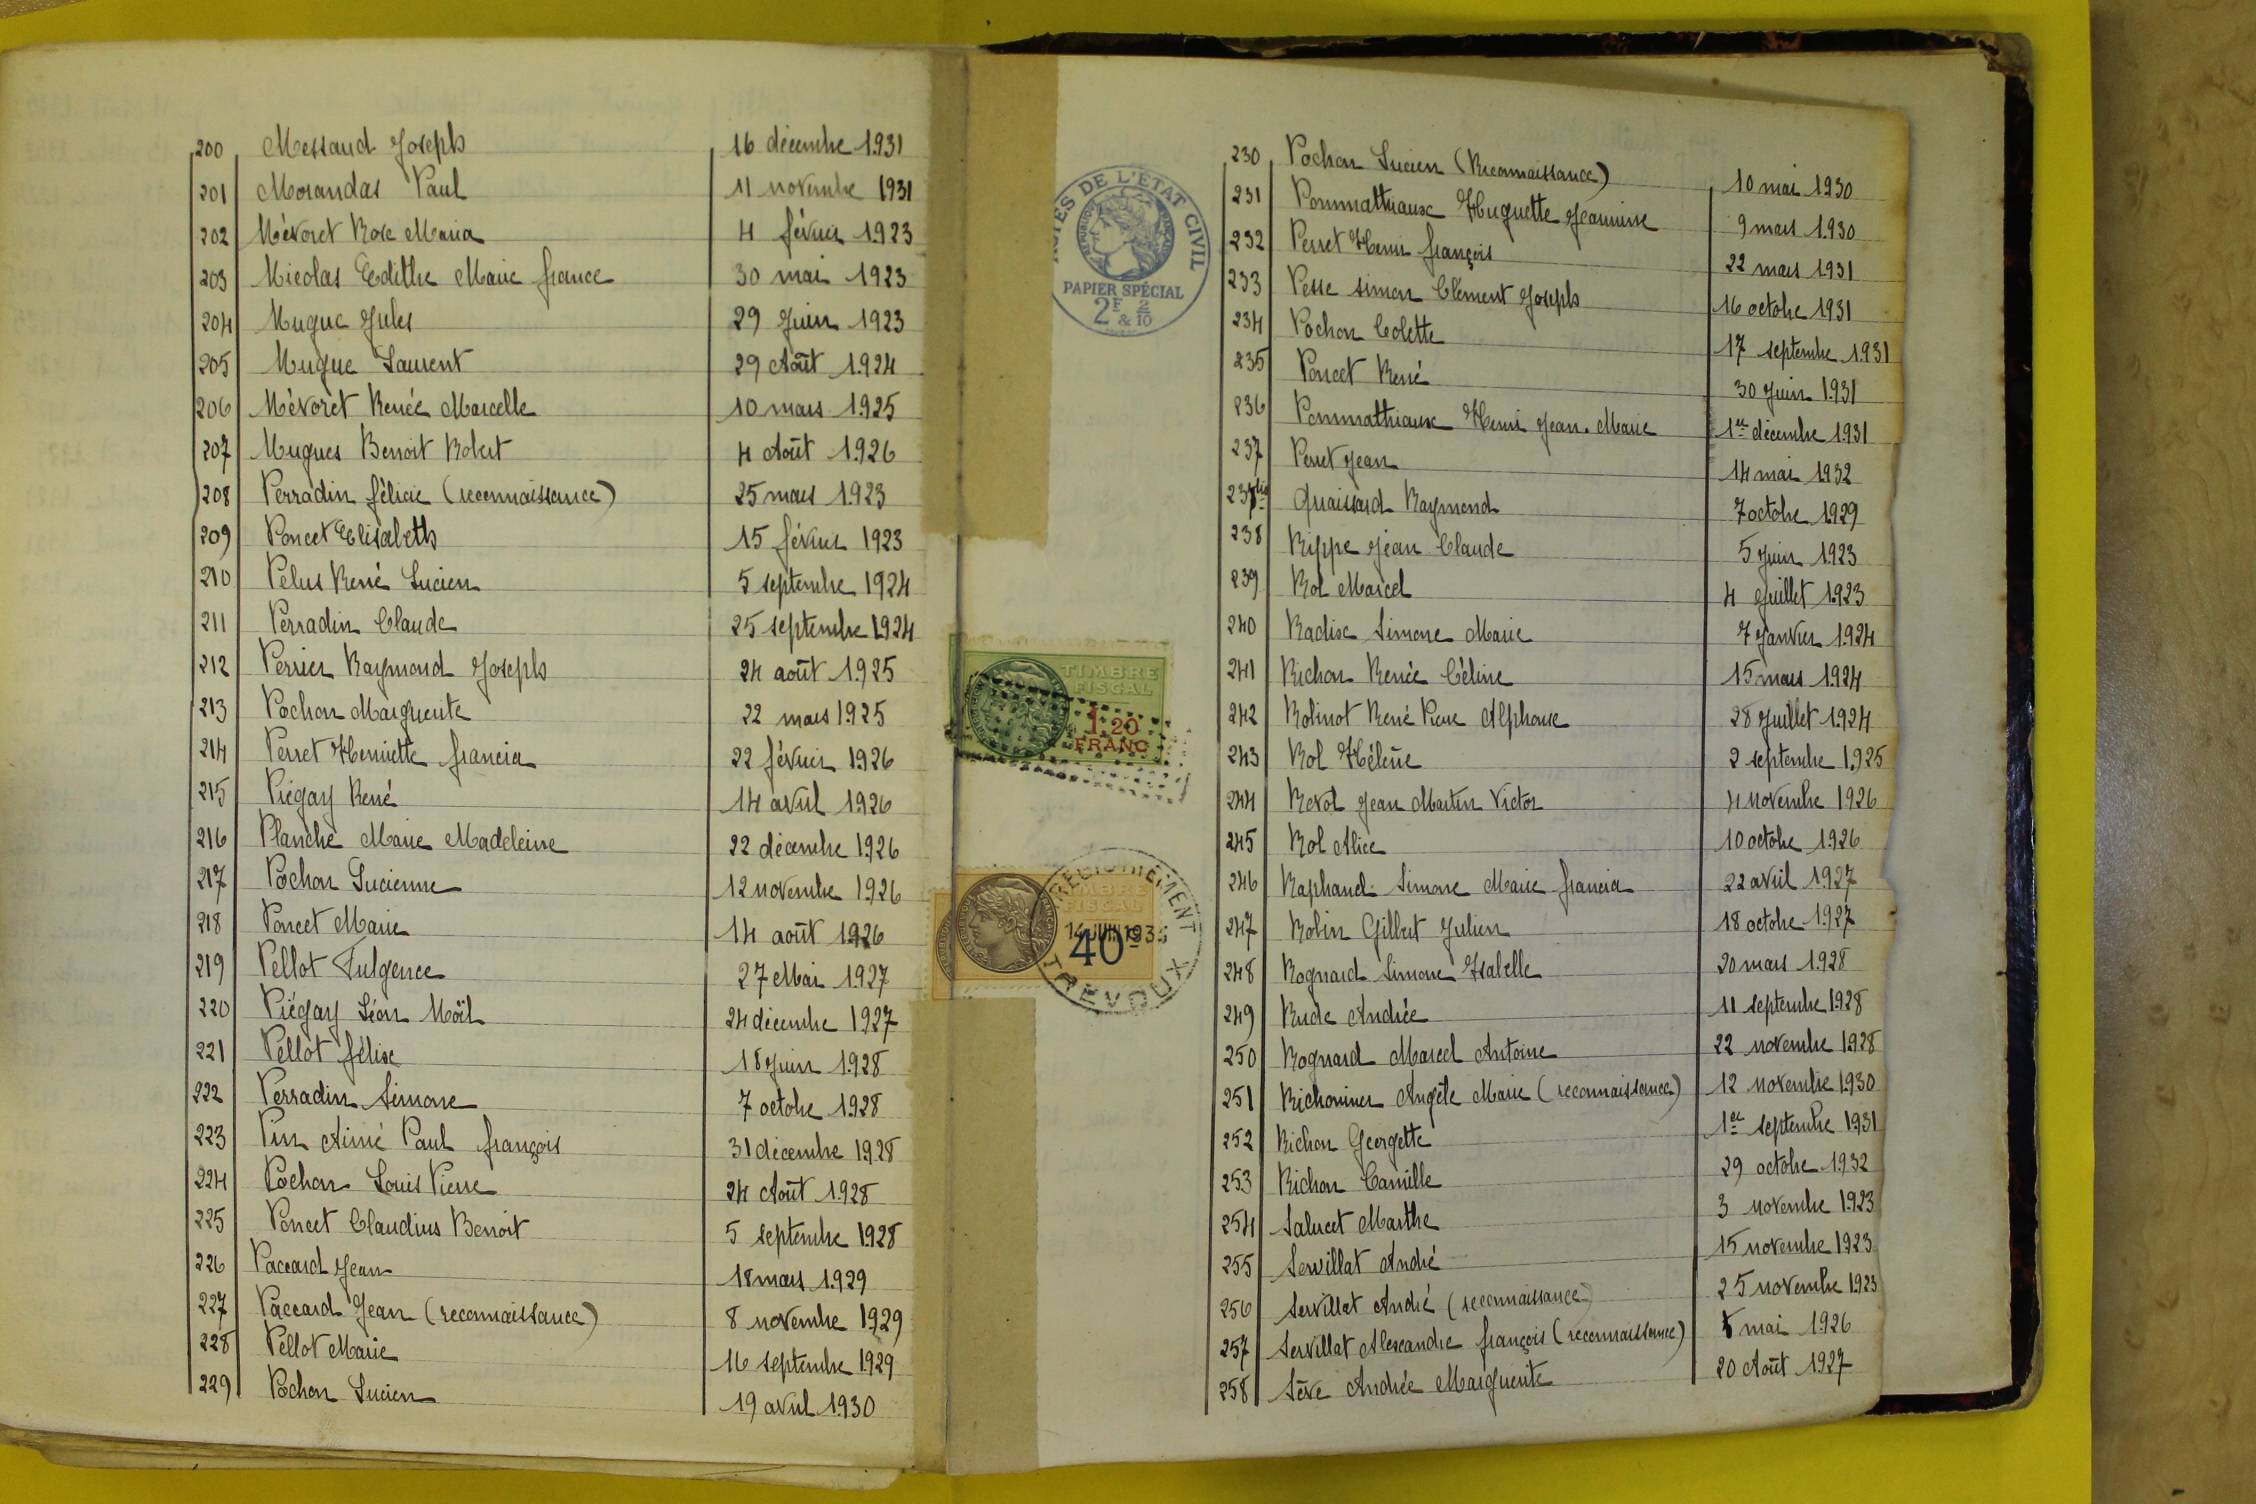 200 Messaud Joseph 16 décembre 1931
201 Morandas Paul 11 novembre 1931
202 Névoret Rose Maria 4 février 1923
203 Nicolas Edithe Marie france 30 mai 1923
204 Nugue Jules 29 Juin 1923
205 Nugue Laurent 29 Août 1924
206 Névoret Renée Marcelle 10 mars 1925
207 Nugues Benoit Robert 4 Août 1926
208 Perradin félicie (reconnaissance) 25 mars 1923
209 Poncet Elisabeth 15 février 1923
210 Pelus René Lucien 5 septembre 1924
211 Perradin Claude 25 septembre 1924
212 Perrier Raymond Joseph 24 août 1925
213 Pochon Marguerite 22 mars 1925
214 Perret Henriette francia 22 février 1926
215 Piégay René 14 avril 1926
216 Planche Marie Madeleine 22 décembre 1926
217 Pochon Lucienne 12 novembre 1926
218 Poncet Marie 14 août 1926
219 Pellot Fulgence 27 Mai 1927
220 Piégay Léon Noël 24 décembre 1927
221 Pellot félix 18 Juin 1928
222 Perradin Simone 7 octobre 1928
223 Pin Aimé Paul françois 31 décembre 1928
224 Pochon Louis Pierre 24 Août 1928
225 Poncet Claudius Benoit 5 septembre 1928
226 Paccard Jean 18 mars 1929
227 Paccard Jean (reconnaissance) 8 novembre 1929
228 Pellot Marie 16 septembre 1929
229 Pochon Lucien 19 avril 1930
DE L'ÉTAT CIVIL
PAPIER SPÉCIAL
2F & 2/10
TIMBRE
FISCAL
1.20
FRANC
TIMBRE
FISCAL
40c
14 JUIN 193
TRÉVOUX
230 Pochon Lucien (Reconnaissance) 10 mai 1930
231 Pommathiaux Huguette Jeannine 9 mars 1930
232 Perret Henri françois 22 mars 1931
233 Pesse simon Clément Joseph 16 octobre 1931
234 Pochon Colette 17 septembre 1931
235 Poncet René 30 Juin 1931
236 Pommathiaux Henri Jean-Marie 1er décembre 1931
237 Perret Jean 14 mai 1932
237bis Quaissard Raymond 7 octobre 1929
238 Rippe Jean Claude 5 Juin 1923
239 Rol Marcel 4 Juillet 1923
240 Radix Simone Marie 7 Janvier 1924
241 Richon Renée Céline 15 mars 1924
242 Robinot René Pierre Alphonse 28 Juillet 1924
243 Rol Hélène 2 septembre 1925
244 Revol Jean Martin Victor 4 novembre 1926
245 Rol Alice 10 octobre 1926
246 Raphanel Simone Marie francia 22 avril 1927
247 Robin Gilbert Julien 18 octobre 1927
248 Rognard Simone Isabelle 20 mars 1928
249 Rude Andrée 11 septembre 1928
250 Rognard Marcel Antoine 22 novembre 1928
251 Richominer Angèle Marie (reconnaissance) 12 novembre 1930
252 Richon Georgette 1er septembre 1931
253 Richon Camille 29 octobre 1932
254 Salucet Marthe 3 novembre 1923
255 Servillat André 15 novembre 1923
256 Servillat André (reconnaissance) 25 novembre 1923
257 Servillat Alexandre françois (reconnaissance) mai 1926
258 Sève Andrée Marguerite 20 Août 1927